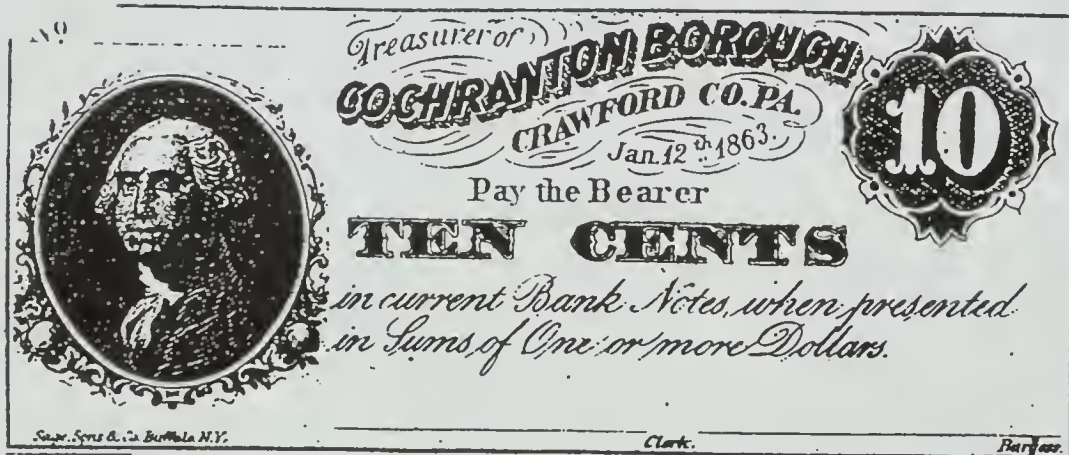 No
Treasurer of
COCHRANTON BOROUGH
CRAWFORD CO. PA.
Jan. 12th 1863.
10
Pay the Bearer
TEN CENTS
in current Bank Notes, when presented
in Sums of One or more Dollars.
Sage, Sons & Co. Buffalo N.Y.
Clerk.
Burgess.